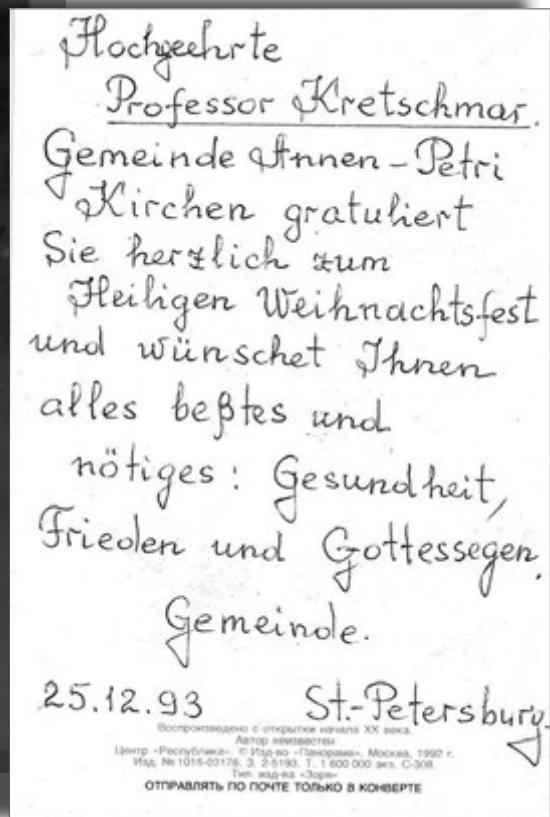 Hochgeehrte
Professor Kretschmar.
Gemeinde Annen-Petri
Kirchen gratuliert
Sie herzlich zum
Heiligen Weihnachtsfest
und wünschet Ihnen
alles beßtes und
nötiges: Gesundheit,
Frieden und Gottessegen.
Gemeinde.
25.12.93 St.-Petersburg
Воспроизведено с открытки начала XX века.
Автор неизвестен
Центр «Республика». © Изд-во «Панорама», Москва, 1992 г.
Изд. № 1016-03178. З. 2-5193. Т. 1 600 000 экз. С-308.
Тип. изд-ва «Зоря»
ОТПРАВЛЯТЬ ПО ПОЧТЕ ТОЛЬКО В КОНВЕРТЕ